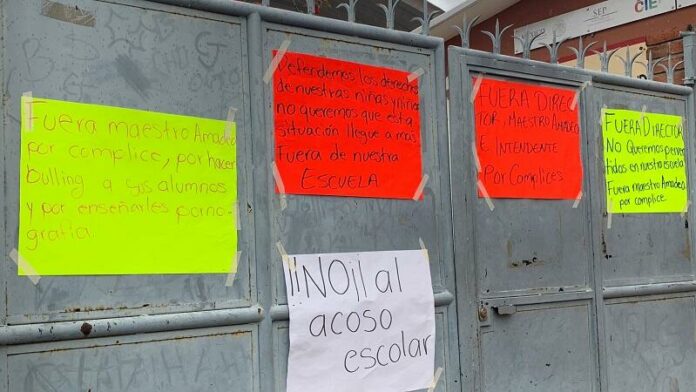 Fuera maestro Amadeo
por complice, por hacer
bulling a sus alumnos
y por enseñarles porno-
grafia.
Defendemos los derechos
de nuestras niñas y niños
no queremos que esta
situación llegue a mas
Fuera de nuestra
ESCUELA
¡¡NO¡¡ al
acoso
escolar
FUERA DIREC
TOR, MAESTRO AMADEO
E. INTENDENTE
Por Complices
FUERA DIRECTOR
No Queremos perver
tidos en nuestra escuela
Fuera maestro Amadeo
por complice.
MÉXICO
SEP